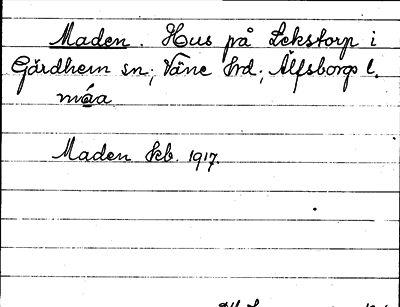 Maden. Hus på Lekstorp i
Gärdhem sn; Väne hrd; Älfsborgs l.
måa
Maden kb. 1917.